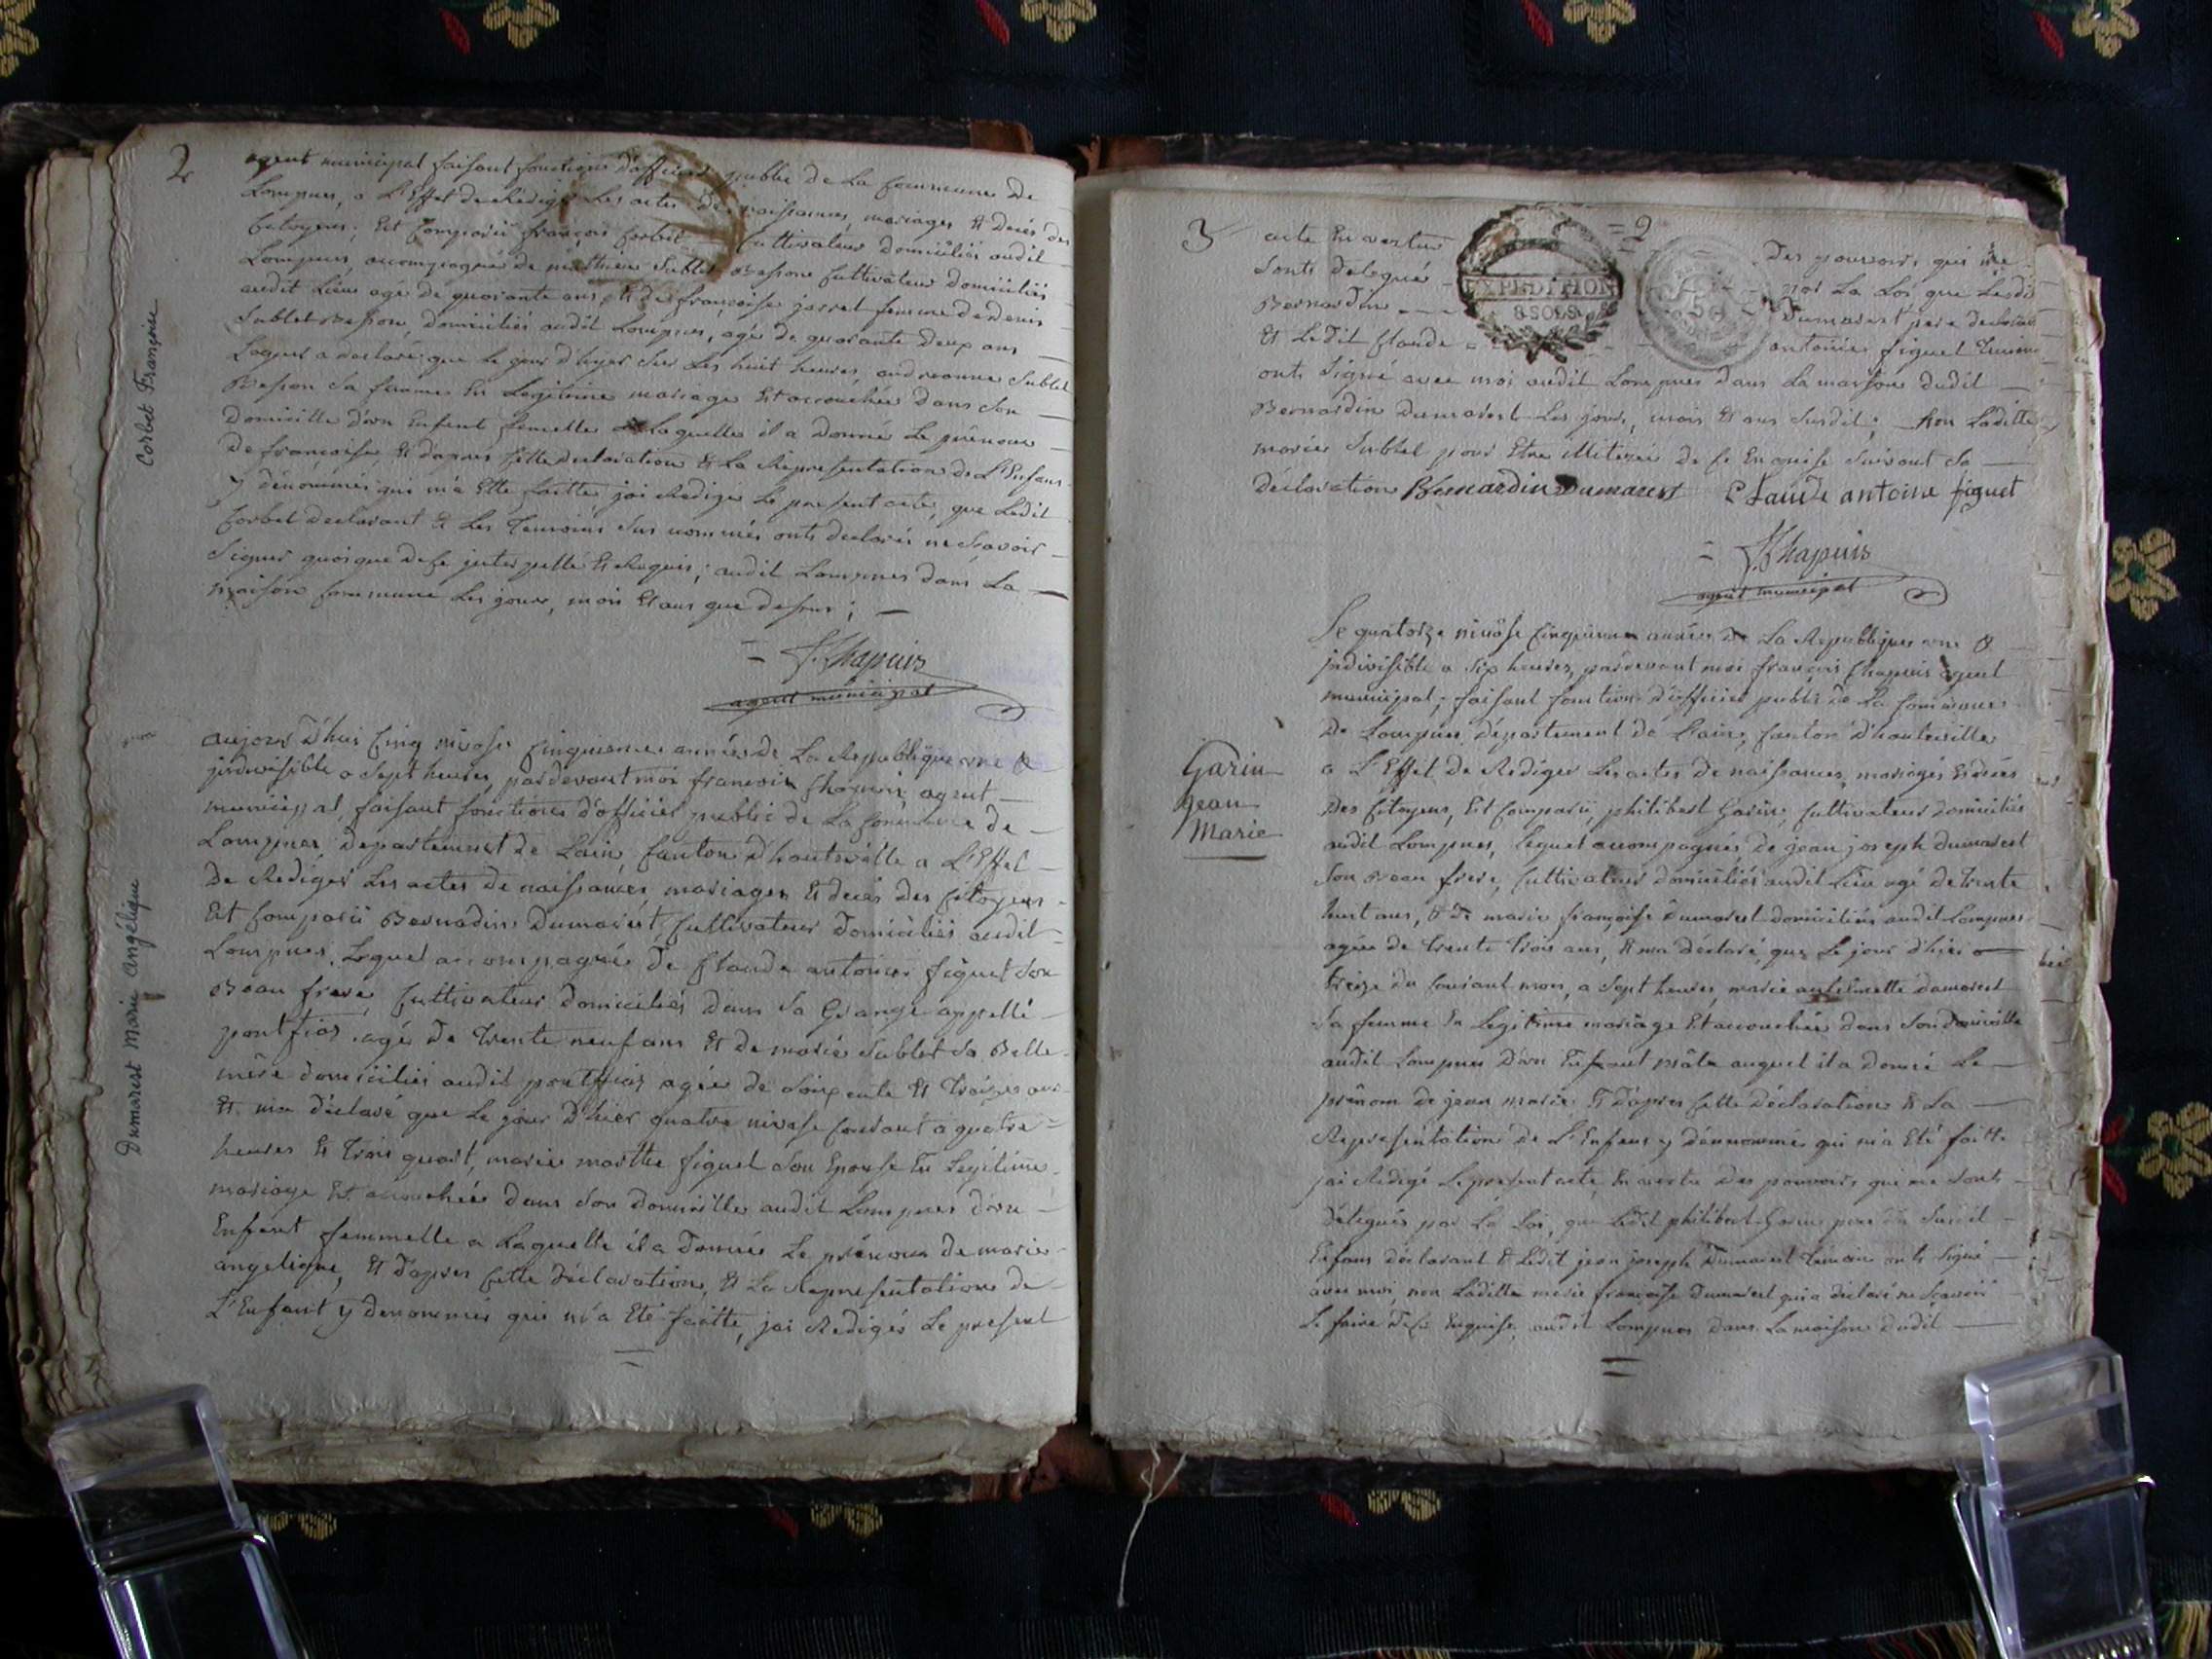 2
agent municipal faisant fonctions d'officier public de La Commune de
Lompnes, a L'Effet de Rédiger Les actes de naissances, mariages Et decès des
Citoyens; Est Comparü françois Corbet Cultivateur domiciliés audit
Lompnes, accompagné de mathieu Sublet Besson Cultivateur domiciliés
audit Lieu agé de quarante ans, Et de françoise jarret femme de denis
Sublet Besson, domiciliés audit Lompnes, agé de quarante deux ans
Lequel a declaré que Le jour d'hyer sur Les huit heures, Sublet
Besson Sa femme En Legitime mariage Est accouchée dans Son
domicille d'un Enfent femelle a Laquelle il a donné Le prénom
de françoise Et d'apres Cette declaration Et La Representation de L'Enfant
y dénommés qui m'a Etté faitte, jai Redigé Le present acte, que Ledit
Corbet declarant Et Les Temoins sus nommés onts declarés ne Sçavoir
Signer quoique de Ce interpellé Et Requis; audit Lompnes dans La
maison Commune Les jour, mois Et ans que dessus;
Corbet Françoise
= f. Chapuis
agent municipal
aujourd'hui Cinq nivose Cinquieme année de La Republique une Et
jndivisible a Sept heures, pardevant moi francois Chapuis, agent
municipal, faisant fonctions d'officier public de La Commune de
Lompnes, departement de Lain, Canton d'hauteville a L'Effet
De Rediger Les actes de naissances, mariages Et decès des Citoyens
Est Comparü Bernadin Dumarest Cultivateur Domiciliés audit
Lompnes. Lequel accompagné de Claude antoine figuet Son
Beau frere, Cultivateur domiciliés dans Sa Grange appellé
pontfias agé de trente neuf ans Et de marie Sublet Sa Belle
mère domiciliés audit pontfias agée de Soixente Et treize ans
Et m'a déclaré que Le jour D'hier quatre nivose Courant a quatre
heures Et trois quart, marie marthe figuet Son Epouse En Legitime
mariage Est accouchée dans Son domicille audit Lompnes d'un
Enfent femmelle a Laquelle il a donnée Le prénom de marie
angelique, Et d'apres Cette déclaration, Et La Representation de
L'Enfant y denommés qui m'a Eté faitte, jai Redigés Le present
=
Dumarest Marie Angélique
3
= 2 =
EXPEDITION
8 SOLS
acte En vertu des pouvoirs, qui me
Sonts delegué par La Loi, que Ledit
Bernardin Dumarest pere declarant
Et LeDit Claude antoine figuet temoin
onts Signé avec moi audit Lompnes dans La maison dudit
Bernardin Dumarest Les jours, mois Et ans Susdit; Non Laditte
marie Sublet pour Etre de Ce Enquise Suivant Sa
déclaration Bernardin Dumarest Claude antoine figuet
= f. Chapuis
agent municipal
Le quatorze nivôse Cinquieme année de La Republique une Et
jndivisible a Six heures, pardevant moi françois Chapuis agent
municipal; faisant fonction d'officier public de La Commune
De Lompnes, département de L'ain, Canton d'hauteville
a L'Effet de Rediger Les actes de naissances, mariages Et decès
Des Citoyens, Est Comparü, philibert Garin, Cultivateur domiciliés
audit Lompnes, Lequel accompagnés, de jean joseph dumarest
Son Beau frere, Cultivateur domiciliés audit Lieu agé de trente
huit ans, Et de marie françoise Dumarest domiciliés audit Lompnes
agée de trente trois ans, Et m'a déclaré, que Le jour d'hier
treize du Courant mois, a Sept heures, marie anthelmette dumarest
Sa femme En Legitime mariage Est accouchée dans Son domicille
audit Lompnes D'un Enfent mâle auquel il a donné Le
prénom de jean marie; Et d'apres Cette déclaration Et La
Representation de L'Enfant y dénommés qui m'a Eté faitte
jai Redigé Le present acte, En vertu Des pouvoirs, qui me Sonts
délégués par La Loi, que Ledit philibert Garin pere du Susdit
Enfans déclarant Et Ledit jean joseph Dumarest temoin onts Signé
avec moi, non Laditte marie françoise Dumarest qui a déclaré ne Sçavoir
Le faire de Ce Enquise, audit Lompnes dans La maison dudit
=
Garin
Jean
Marie